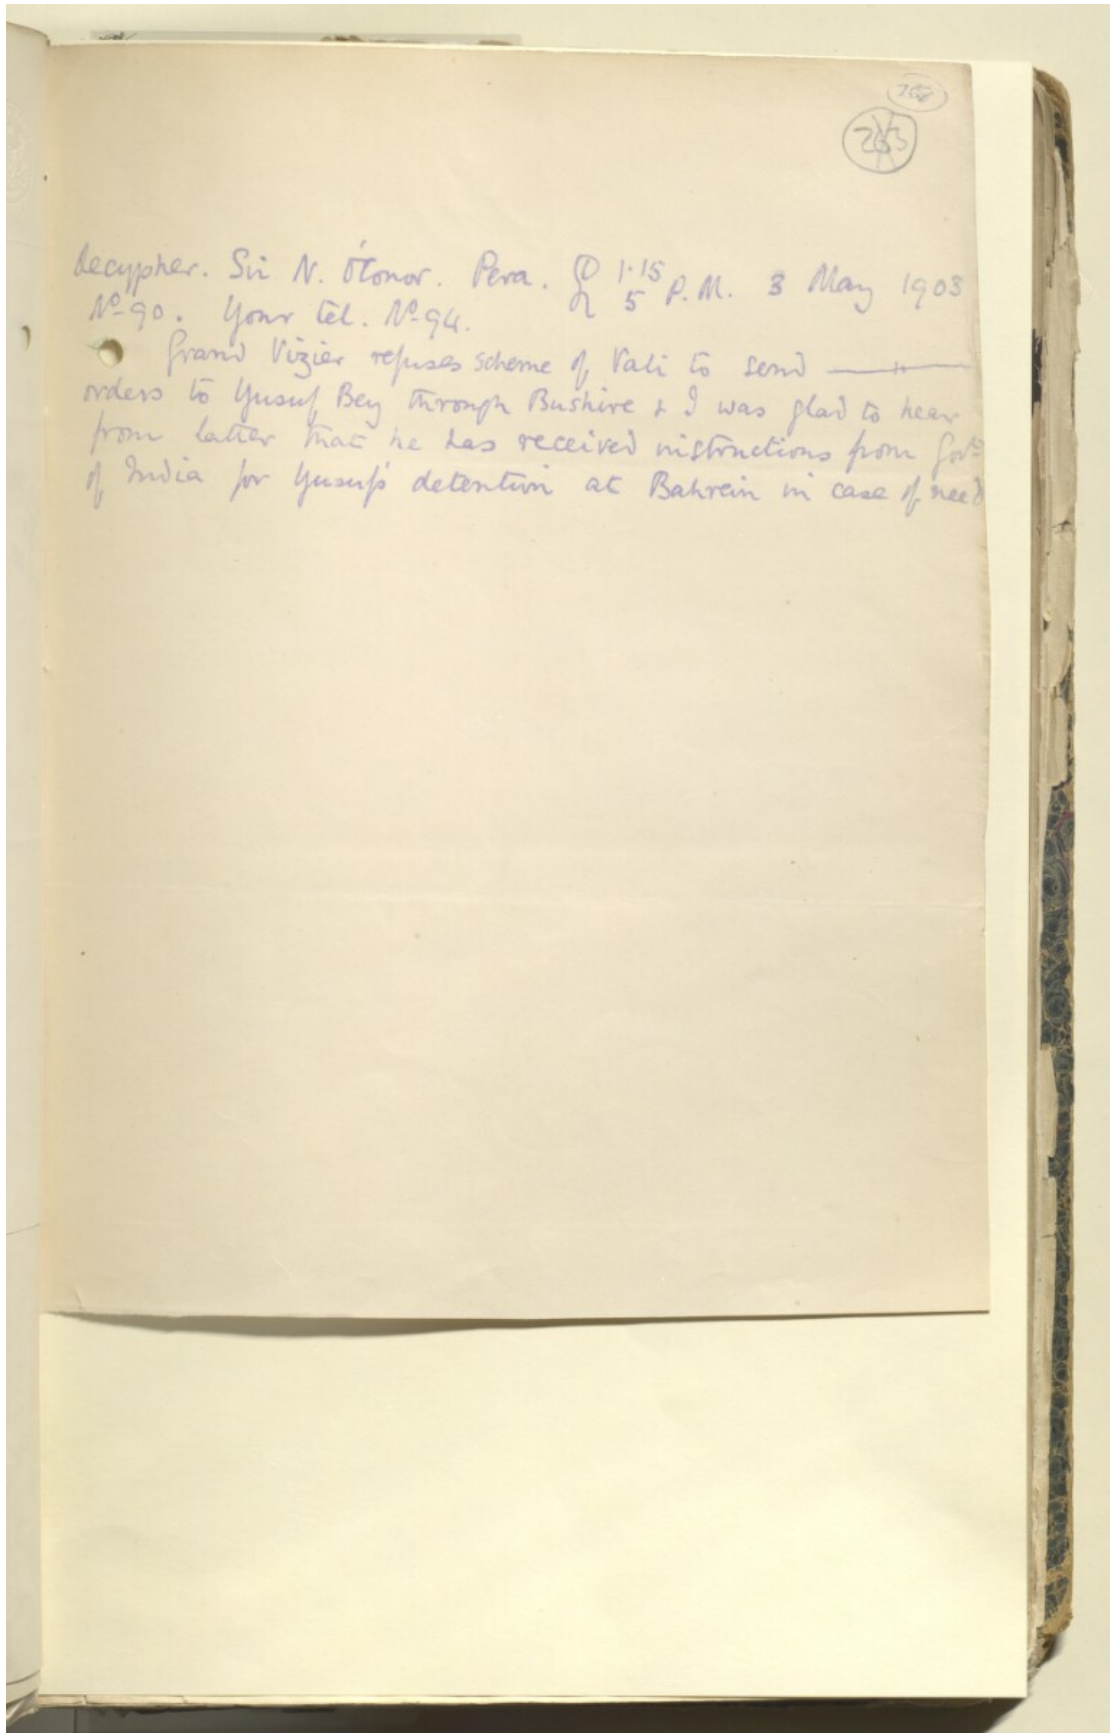 253
Decypher. Sir N. O'Conor. Pera. D 1.15 P.M. 3 May 1903
R 5
No. 90. Your tel. No. 94.
Grand Vizier refuses scheme of Vali to send
orders to Yusuf Bey through Bushire & I was glad to hear
from latter that he has received instructions from Govt
of India for Yusuf's detention at Bahrein in case of need